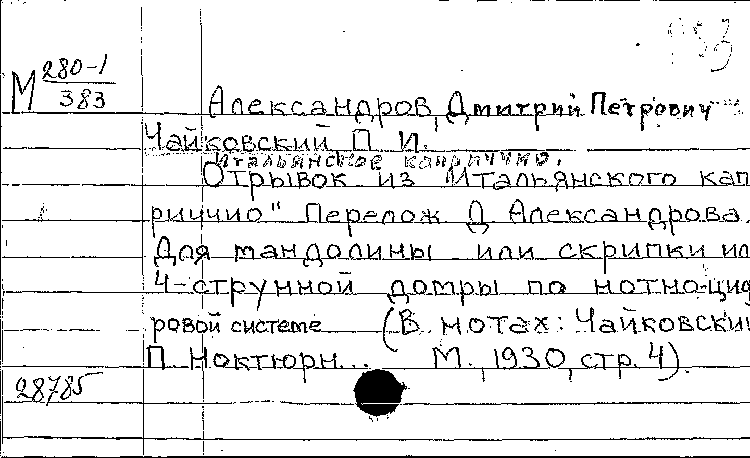 933
М 280-1
383
Александров, Дмитрий Петрович
Чайковский П. И.
Итальянское каприччио.
Отрывок из Итальянского кап
риччио" Перелож Д Александрова.
Для мандолины или скрипки ил
4-струнной домры по нотно-циф
ровой системе (В нотах: Чайковский
П. Ноктюрн... М., 1930, стр. 4).
28785